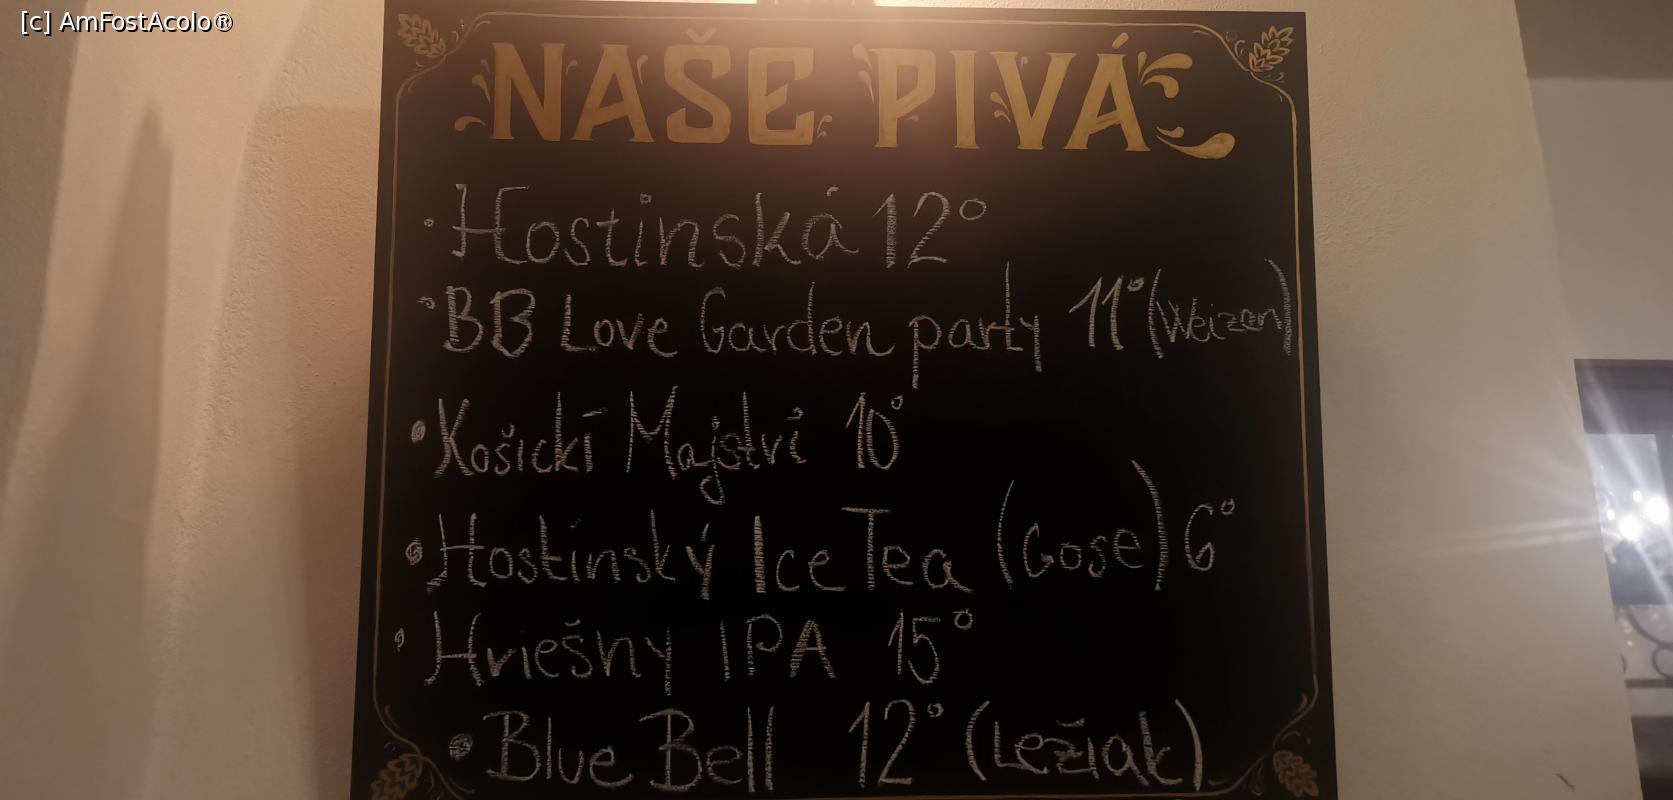 [c] AmFostAcolo®
NAŠE PIVÁ
· Hostinská 12°
· BB Love Garden party 11° (Weizen)
· Košickí Majstri 10°
· Hostinský Ice Tea (Gose) 6°
· Hriešny IPA 15°
· Blue Bell 12° (Ležiak)